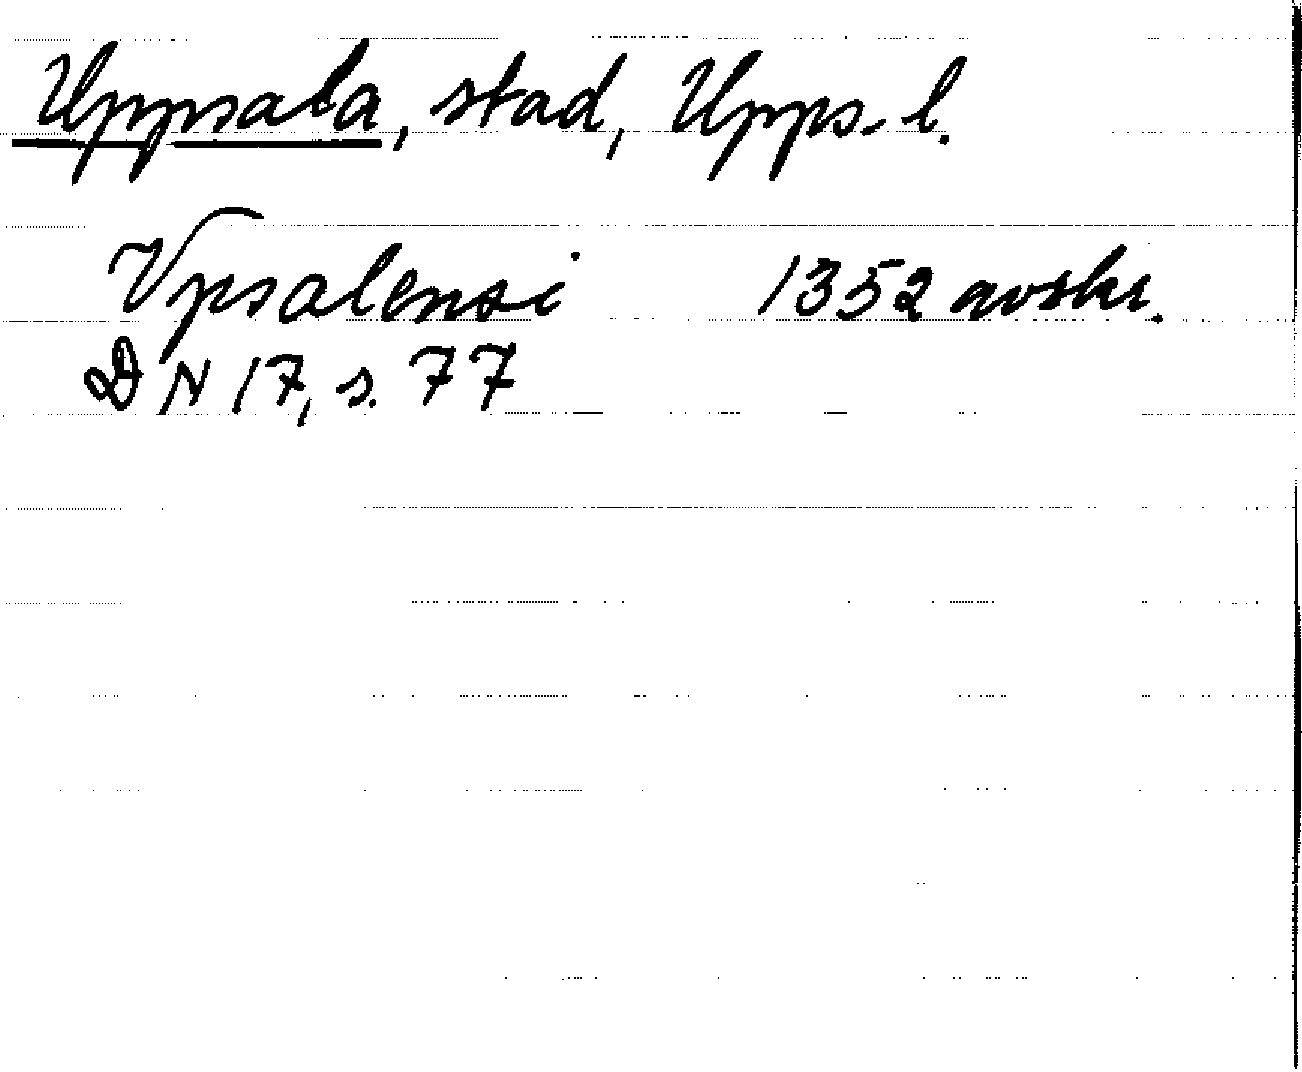 Uppsala, stad, Upps. l.
Vpsalensi 1352 avskr.
DN 17, s. 77